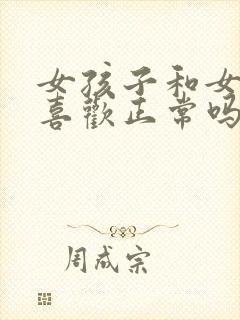 女孩子和女
喜歡正常吗
周成宗